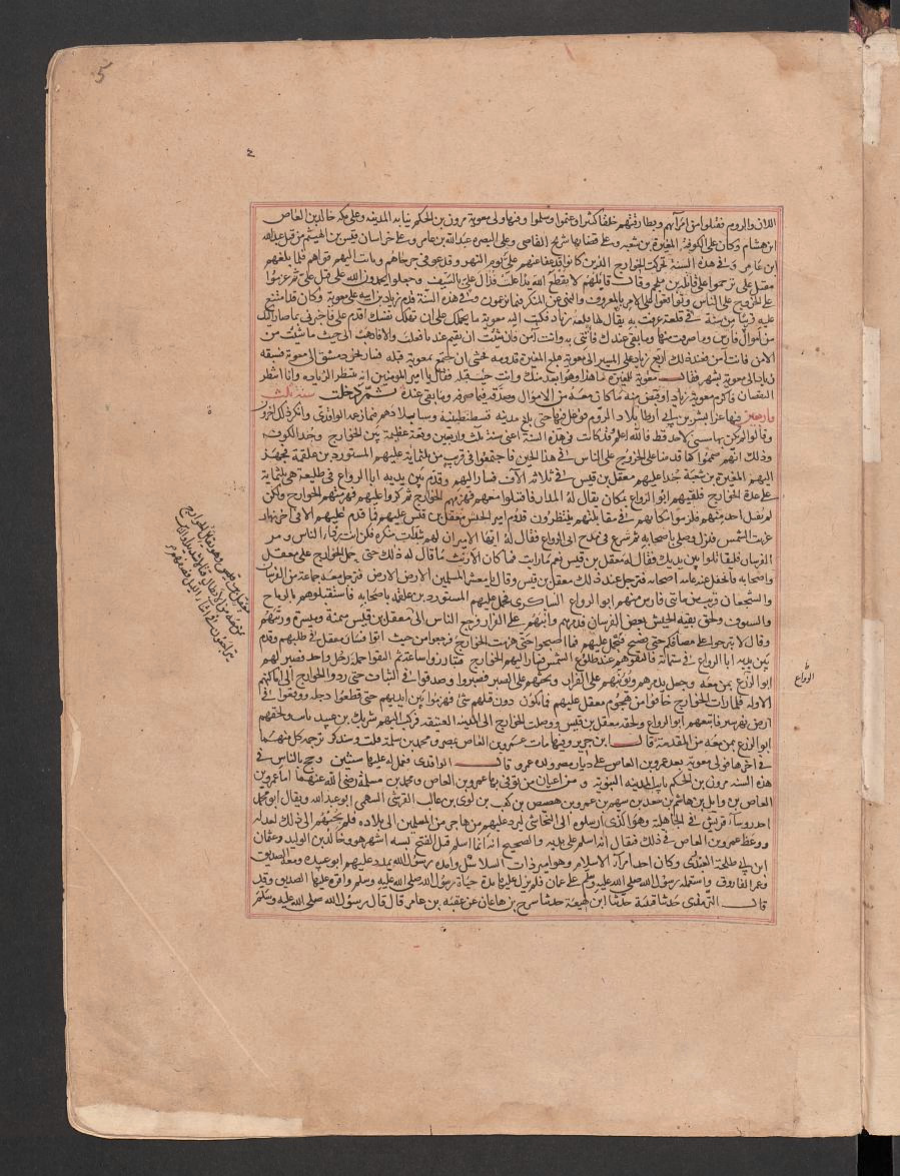 5
اللان والروم فقتلوا من امرآيهم وبطارقتهم خلقا كثيرا وغنموا وسلموا وفيها ولى معوية مرون بن الحكم نيابه المدينه وعلى مكه خالد بن العاص
ابن هشام وكان على الكوفة المغيرة بن شعبه وعلى قضايها شريح القاضى وعلى البصره عبد الله بن عامر وعلى خراسان قيس بن الهيثم من قبل عبد الله
ابن عامر وفى هذه السنة تحركت الخوارج الذين كانوا قد عفا عنهم على يوم النهر وقد عوفى جرحاهم وثابت اليهم قواهم فلما بلغهم
مقتل على ترحموا على قاتله بن ملجم وقال قايلهم لا يقطع الله يدا علت قذال على بالسيف وجعلوا يحمدون الله على قتل على ثم عزموا
على الخروج على الناس وتوافقوا على الامر بالمعروف والنهى عن المنكر فيما يزعمون وفى هذه السنة قدم زياد بن ابيه على معوية وكان قد امتنع
عليه قريبا من سنة فى قلعة عرفت به يقال لها قلعة زياد فكتب اليه معوية ما يحملك على ان تهلك نفسك اقدم على فاخبرنى بما صار اليك
من اموال فارس وما صرفت منها وما بقى عندك فائتنى به وانت آمن فان شئت ان تقيم عندنا فعلت والا ذهبت الى حيث ما شئت من
الارض فانت آمن فعند ذلك ازمع زياد على المسير الى معوية فبلغ المغيرة قدومه فخشى ان يجتمع بمعوية قبله فسار نحو دمشق الى معوية فسبقه
زياد الى معوية بشهر فقال معوية للمغيرة ما هذا وهو ابعد منك وانت جئت قبله فقال يا امير المومنين انه ينتظر الزياده وانا انتظر
النقصان فاكرم معوية زيادا وقبض منه ما كان معه من الاموال وصدقه فيما صرفه وما بقى عنده ثم دخلت سنة ثلث
واربعين فيها غزا بشر بن ابى ارطاة بلاد الروم فوغل فيها حتى بلغ مدينه قسطنطينه وشتا ببلادهم فيما زعم الواقدى وانكر ذلك اخرون
وقالوا لم يكن بها مشتى لاحد قط فالله اعلم وكانت فى هذه السنة اعنى سنة ثلث واربعين وقعة عظيمة بين الخوارج وجند الكوفه
وذلك انهم صمموا كما قدمنا على الخروج على الناس فى هذا الحين فاجتمعوا فى قريب من ثلثمائة عليهم المستورد بن علقمة فجهز
اليهم المغيرة بن شعبة جندا عليهم معقل بن قيس فى ثلاثه آلاف فسار اليهم وقدم بين يديه ابا الرواع فى طليعة هى ثلثماية
على عدة الخوارج فلقيهم ابو الرواع بمكان يقال له المذار فاقتتلوا معهم فهزمهم الخوارج ثم كروا عليهم فهزمتهم الخوارج ولكن
لم يقتل احد منهم فلزموا مكانهم فى مقابلتهم ينتظرون قدوم امير الجيش معقل بن قيس عليهم فما قدم عليهم الا فى اخر نهار
غربت الشمس فنزل وصلى باصحابه ثم شرع فى مدح ابى الرواع فقال له ايها الامير ان لهم شدات منكره فكن انت ردأ الناس ومر
الفرسان فليقاتلوا بين يديك فقال له معقل بن قيس نعم ما رايت فما كان الا ريث ما قال له ذلك حتى حمل الخوارج على معقل
واصحابه فانجفل عنه عامة اصحابه فترجل عند ذلك معقل بن قيس وقال يا معشر المسلمين الارض الارض فترجل معه جماعة من الفرسان
والشجعان قريب من مائتى فارس منهم ابو الرواع الشاكرى فحمل عليهم المستورد بن علقمه باصحابه فاستقبلوهم بالرماح
والسيوف ولحق بقية الجيش بعض الفرسان فذمرهم وانبهم على الفرار فرجع الناس الى معقل بن قيس ميمنة وميسرة ورتبهم
وقال لا تبرحوا على مصافكم حتى نصبح فنحمل عليهم فما اصبحوا حتى هربت الخوارج فرجعوا من حيث اتوا فسار معقل فى طلبهم وقدم
بين يديه ابا الرواع فى ستمائة فالتقوا هم عند طلوع الشمس فثار اليهم الخوارج فتبارزوا ساعة ثم التقوا حملة رجل واحد فصبر لهم
ابو الرواع بمن معه وجعل يذمرهم ويؤنبهم على الفرار ويحثهم على الصبر فصبروا وصدقوا فى الثبات حتى ردوا الخوارج الى اماكنهم
الاوله فلما رات الخوارج خافوا من هجوم معقل عليهم فما يكون دون قتلهم شى فهربوا بين ايديهم حتى قطعوا دجله ووقعوا فى
ارض نهر سير فاتبعهم ابو الرواع ولحقه معقل بن قيس ووصلت الخوارج الى المدينه العتيقه فركب اليهم شريك بن عبيد نائب ولحقهم
ابو الرواع بمن معه من المقدمة قال ابن جرير وفيها مات عمرو بن العاص بمصر ومحمد بن سلمة قلت وسنذكر ترجمة كل منهما
فى اخرها فولى معوية بعد عمرو بن العاص على ديار مصر ولده عمرو قال الواقدى فعمل له عليها سنتين وحج بالناس فى
هذه السنه مرون بن الحكم نائب المدينه النبويه ومن اعيان من توفى بها عمرو بن العاص ومحمد بن مسلمة رضى الله عنهما اما عمرو بن
العاص بن وايل بن هاشم بن سعيد بن سهم بن عمرو بن هصيص بن كعب بن لوى بن غالب القرشى السهمى ابو عبد الله ويقال ابو محمد
احد روساء قريش فى الجاهلة وهو الذى ارسلوه الى النجاشى ليرد عليهم من هاجر من المسلمين الى بلاده فلم يجبهم الى ذلك لعدله
ووعظ عمرو بن العاص فى ذلك فيقال انه اسلم على يديه والصحيح انه انما اسلم قبل الفتح بسته اشهر هو وخالد بن الوليد وعثمان
ابن ابى طلحة العبدرى وكان احد امرآء الاسلام وهو امير ذات السلاسل وامده رسول الله بمدد عليهم ابو عبيده ومعه الصديق
وعمر الفاروق واستعمله رسول الله صلى الله عليه وسلم على عمان فلم يزل عليها مدة حياة رسول الله صلى الله عليه وسلم واقره عليها الصديق وقد
قال الترمذى حدثنا قتيبة حدثنا ابن لهيعة حدثنا مشرح بن هاعان عن عقبه بن عامر قال قال رسول الله صلى الله عليه وسلم
الرواع